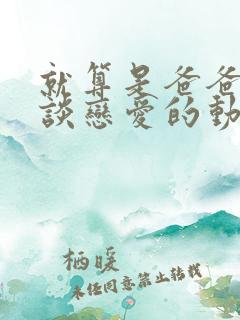 就算是爸爸
談戀愛的動
栖暖
未经同意禁止转载